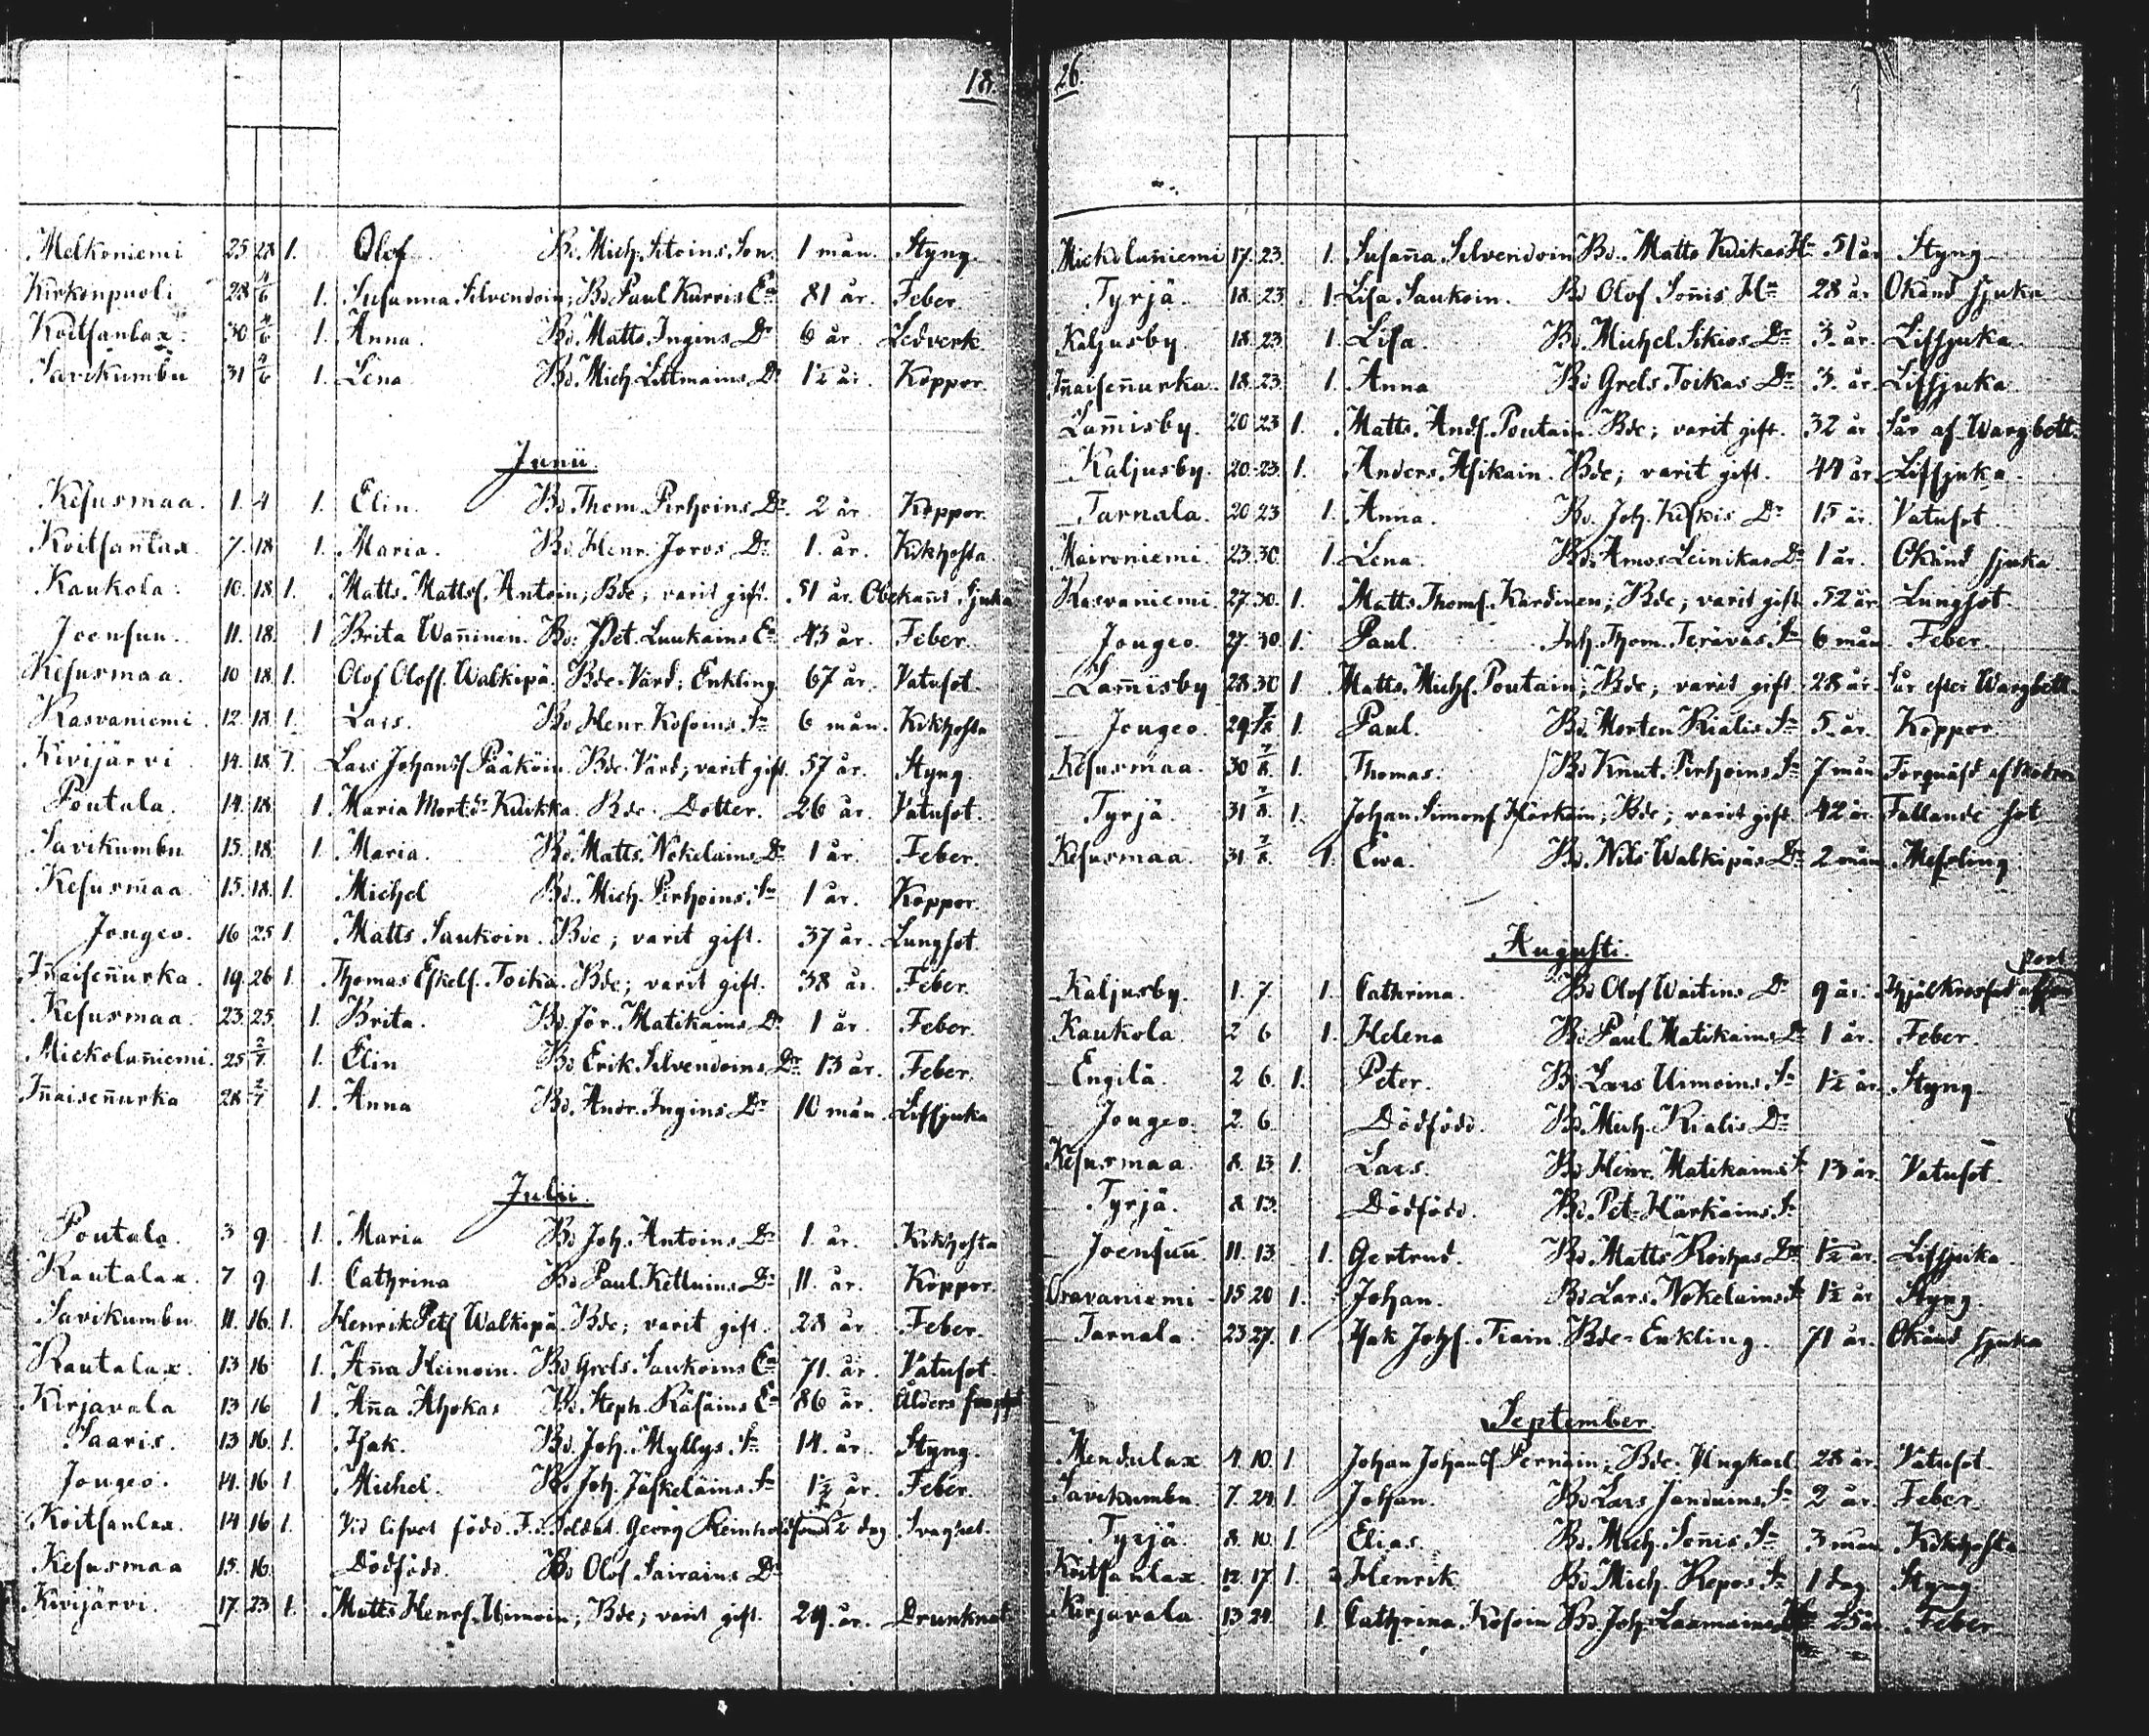 18.
Melkoniemi 25 28 1. Olof Bd. Mich. Sitoins Son. 1 mån. Styng
Kirkonpuoli 28 4/6 1. Susanna Silvendoin, Bd Paul Kurris Ea 81 år. Feber.
Koitsanlax 30 4/6 1. Anna. Bd. Matts. Ingins Dr 6 år. Ledverk.
Savikumbu 31 4/6 1. Lena Bd. Mich. Littmains Dr 1½ år. Koppor.
Junii
Kesusmaa. 1. 4 1. Elin. Bd Thom. Pirhoins Dr 2 år. Koppor.
Koitsanlax. 7. 18. 1. Maria. Bd. Henr. Joros Dr 1. år. Kikhosta.
Kaukola. 10. 18. 1. Matts. Mattsf. Antoin, Bde; varit gift. 51 år. Obekant Sjuka
Joensuu. 11. 18. 1 Brita Wan̄inen. Bd. Pet. Luukains Ea 43 år. Feber.
Kesusmaa. 10 18. 1. Olof Oloff. Walkipä. Bde-Värd; Enkling 67 år. Vatusot.
Rasvaniemi. 12. 18 1. Lars. Bd Henr. Kosoins Sn 6 mån. Kikhosta
Kivijärvi 14. 18 1. Lars Johansf Pääköin. Bde-Värd; varit gift. 57 år. Styng.
Poutala. 14. 18. 1. Maria Mort.dr Kuikka. Bde. Dotter. 26 år. Vatusot.
Savikumbu 15. 18 1. Maria. Bd. Matts. Nokelains Dr 1 år. Feber.
Kesusmaa. 15. 18. 1. Michel Bd. Mich. Pirhoins. Sn 1 år. Koppor.
Jougeo. 16 25 1. Matts Saukoin. Bde; varit gift. 37 år. Lungsot.
In̄aisen̄urka. 19. 26 1. Thomas Eskelf. Toika. Bde; varit gift. 38 år. Feber.
Kesusmaa. 23. 25. 1. Brita. Bd. Jör. Matikains Dr 1 år. Feber.
Mickolan̄iemi. 25 2/7 1. Elin Bd Erik. Silvendoins Dr 13 år. Feber.
In̄aisen̄urka 28 2/7 1. Anna Bd. Andr. Ingins Dr 10 mån. Lifsjuka
Julii.
Poutala. 3 9. 1. Maria Bd Joh. Antoins Dr 1. år. Kikhosta
Rautalax. 7 9. 1. Cathrina Bd Paul. Kettuins Dr 11. år. Koppor.
Savikumbu 11. 16. 1. Henrik Petf Walkipä. Bde; varit gift. 28 år. Feber.
Rautalax. 13 16 1. An̄a Heinoin. Bd Grels. Saukoins Ea 71. år. Vatusot.
Kirjavala 13 16 1 An̄a Ahokas Bd. Steph. Räsains Ea 86 år. Ålders
Saaris. 13 16. 1. Isak. Bd. Joh. Myllys. Sn 14. år. Styng.
Jougeo. 14. 16 1. Michel. Bd Joh. Jäskeläins Sn 1½ år. Feber.
Koitsanlax. 14 16 1. Vid lifvet född. F.d. Soldat. Georg Reinholds ½ dag Svaghet.
Kesusmaa 15. 16. Dödfödd. Bd Olof Sairains Dr
Kivijärvi. 17. 23 1. Matts Henrf. Uimoin, Bde; varit gift. 29. år. Drunknat
26.
Mickolan̄iemi 17. 23. 1. Susan̄a Silvendoin Bd. Matts Kuikas Hu 51 år Styng
Tyrjä. 18. 23. 1 Lisa Saukoin. Bd Olof Son̄is Hu 28 år Okänd sjuka
Kaljusby. 18. 23. 1. Lisa. Bd. Michel Sikios Dr 3. år. Lifsjuka.
In̄aisen̄urka. 18. 23. 1. Anna Bd Grels. Toikas Dr 3. år. Lifsjuka
Lam̄isby. 20 23 1. Matts. Andf. Poutain. Bde; varit gift. 32 år Sår af Wargbett.
Kaljusby. 20. 23. 1. Anders. Asikain. Bde; varit gift. 44 år Lifsjuka.
Tarnala. 20 23 1. Anna. Bd. Joh. Kiskis Dr 15 år. Vatusot
Moironiemi. 23. 30. 1. Lena. Bd. Amos Leinikas Dr 1 år. Okänd sjuka
Rasvaniemi. 27. 30. 1. Matts Thomf. Kärdinen; Bde; varit gift 52 år. Lungsot.
Jougeo. 27. 30. 1. Paul. Inh. Thom. Terävas. Sn 6 mån Feber.
Lam̄iisby 28 30 1. Matts. Michf. Poutain; Bde; varit gift 28 år. Sår efter Wargbett
Jougeo. 29 7/8 1. Paul. Bd. Morten Rialis Sn 5. år. Koppor.
Kesusmaa. 30 7/8. 1. Thomas. Bd Knut. Pirhoins Sn 7 mån Förqväfd af Modren
Tyrjä. 31 7/8. 1. Johan Simonf Härköin; Bde; varit gift 42 år Fallande sot
Kesusmaa. 31 7/8. 1. Ewa. Bd. Nils Walkipäs Dr 2 mån. Messling
Augusti.
Kaljusby. 1. 7. 1. Cathrina. Bd Olof Waitins Dr 9 år.
Kaukola. 2 6 1. Helena Bd. Paul Matikains Dr 1 år. Feber.
Engilä. 2 6. 1. Peter. Bd Lars Uimoins. Sn 1½ år Styng
Jougeo. 2. 6. Dödfödd. Bd. Mich. Rialis Dr
Kesusmaa. 8. 13 1. Lars. Bd Henr. Matikains Sn 13 år. Vatusot.
Tyrjä. 8 13. Dödfödd. Bd. Pet. Härköins Sn
Joensuu. 11. 13 1. Gertrud. Bd. Matts Roihas Dr 1½ år. Lifsjuka.
Oravaniemi 15 20 1. Johan. Bd Lars. Nokelains Sn 1½ år Styng.
Tarnala. 23 27. 1. Isak Johf. Tiain Bde-Enkling. 71 år. Okänd sjuka
September.
Mendulax 4. 10. 1 Johan Johansf. Pernäin; Bde. Ungkarl. 28 år. Vatusot.
Savikumbu. 7. 24. 1. Johan. Bd Lars Janduins Sn 2 år. Feber.
Tyrjä 8. 10. 1 Elias. Bd. Mich. Son̄is Sn 3 mån Kikhosta
Koitsanlax. 12. 17 1. Henrik Bd. Mich. Repos Sn 1 dag. Styng.
Kirjavala. 13 24. 1. Cathrina. Kosoin Bd. Joh. Laamains Hu 25 år. Feber